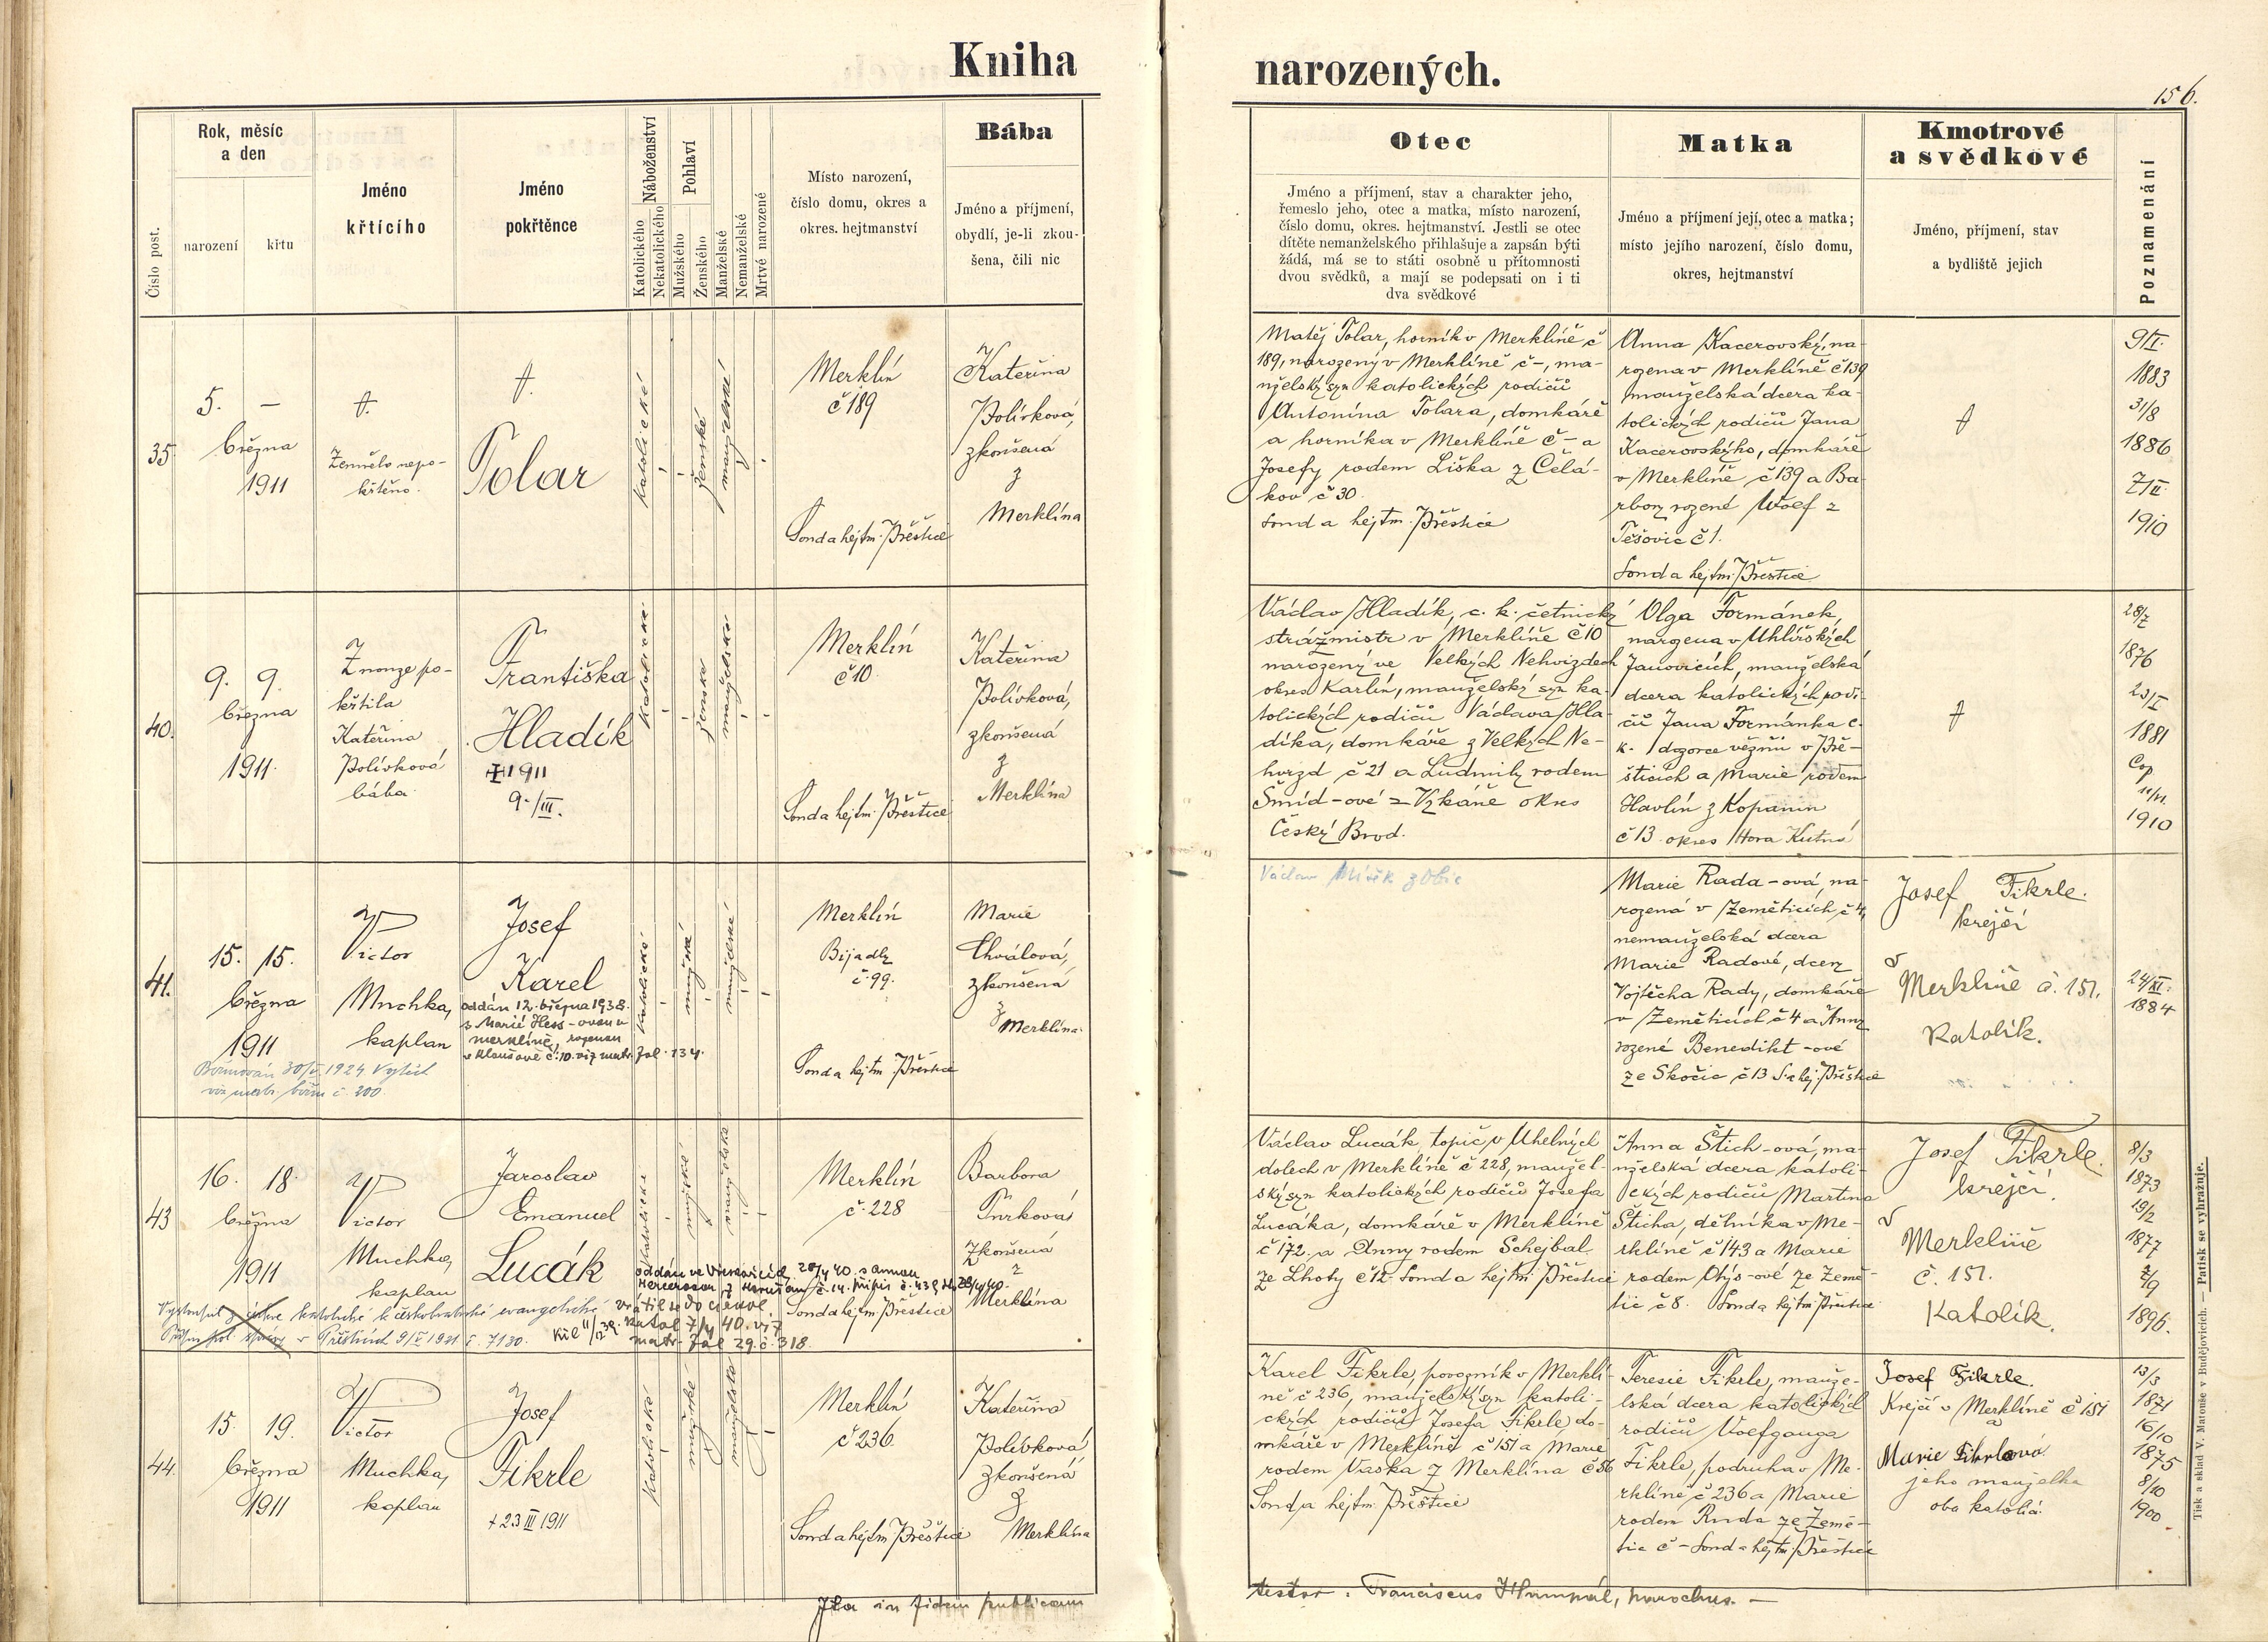 Kniha
narozených.
156.
Číslo post.
Rok, měsíc
a den
narození
křtu
Jméno
křtícího
Jméno
pokřtěnce
Náboženství
Katolického
Nekatolického
Pohlaví
Mužského
Ženského
Manželské
Nemanželské
Mrtvé narozené
Místo narození,
číslo domu, okres a
okres. hejtmanství
Bába
Jméno a příjmení,
obydlí, je-li zkou-
šena, čili nic
Otec
Jméno a příjmení, stav a charakter jeho,
řemeslo jeho, otec a matka, místo narození,
číslo domu, okres. hejtmanství. Jestli se otec
dítěte nemanželského přihlašuje a zapsán býti
žádá, má se to státi osobně u přítomnosti
dvou svědků, a mají se podepsati on i ti
dva svědkové
Matka
Jméno a příjmení její, otec a matka;
místo jejího narození, číslo domu,
okres, hejtmanství
Kmotrové
a svědkové
Jméno, příjmení, stav
a bydliště jejich
Poznamenání
35
5. —
března
1911
†.
Zemřelo nepo-
křtěno.
†.
Tolar
katolické
ženské
manželské
Merklín
č 189
Soud a hejtm. Přeštice
Kateřina
Polívková,
zkoušená
z
Merklína
Matěj Tolar, horník v Merklíně č
189, narozený v Merklíně č –, ma-
nželský syn katolických rodičů
Antonína Tolara, domkáře
a horníka v Merklíně č – a
Josefy rodem Liška z Čelá-
kov č 30.
Soud a hejtm. Přeštice
Anna Kacerovský, na-
rozena v Merklíně č 139
manželská dcera ka-
tolických rodičů Jana
Kacerovského, domkáře
v Merklíně č 139 a Ba-
rbory rozené Woef z
Těšovic č 1.
Soud a hejtm. Přeštice
†
9/II.
1883
31/8
1886
7/II.
1910
40.
9. 9.
března
1911.
Z nouze po-
křtila
Kateřina
Polívková
bába
Františka
Hladík
† 1911
9./III.
Katolické
ženské
manželské
Merklín
č 10
Soud a hejtm. Přeštice
Kateřina
Polívková,
zkoušená
z
Merklína
Václav Hladík, c. k. četnický
strážmistr v Merklíně č 10
narozený ve Velkých Nehvizdech
okres Karlín, manželský syn ka-
tolických rodičů Václava Hla-
díka, domkáře z Velkých Ne-
hvizd č 21 a Ludmily rodem
Šmíd-ové z Vykáně okres
Český Brod.
Olga Formánek,
narozena v Uhlířských
Janovicích, manželská
dcera katolických rodi-
čů Jana Formánka c.
k. dozorce vězňů v Pře-
šticích a Marie rodem
Havlín z Kopanin
č 13 okres Hora Kutná
†
28/7
1876
23/I
1881
Cop
11/VI.
1910
41.
15. 15.
března
1911
Victor
Muchka,
kaplan
Josef
Karel
oddán 12. března 1938.
s Marií Hess-ovou v
Merklíně, rozenou
v Kloušově č. 10. viz matr. fol. 134.
Biřmován 30/V. 1924
viz matr. biřm č. 200.
Katolické
mužské
manželské
Merklín
Bijadly
č. 99.
Soud a hejtm. Přeštice
Marie
Chválová,
zkoušená
z
Merklína
Václav
Marie Rada-ová, na-
rozená v Zeměticích č 4,
nemanželská dcera
Marie Radové, dcery
Vojtěcha Rady, domkáře
v Zeměticích č 4 a Anny
rozené Benedikt-ové
ze Skočic č 13 S. a hej. Přeštice
Josef Fikrle.
krejčí
v
Merklíně č. 151.
Katolík.
24/XI.
1884
43
16. 18.
března
1911
Victor
Muchka,
kaplan
Jaroslav
Emanuel
Lucák
Katolické
mužské
manželské
oddán ve 28/4 40. s Annou
Vystoupil z církve katolické k českobratrské evangelické vrátil se do církve
katol 7/4 40. viz
matr. fol 29. č. 318.
v Přešticích 9/V 1921 č. 7130.
Merklín
č. 228
Soud a hejtm. Přeštice
Barbora
Turková
Zkoušená
z
Merklína
Václav Lucák, topič v Uhelných
dolech v Merklíně č 228, manžel-
ský syn katolických rodičů Josefa
Lucáka, domkáře v Merklíně
č 172. a Anny rodem Schejbal
ze Lhoty č 12. Soud a hejtm. Přeštice
Anna Štich-ová, ma-
nželská dcera katoli-
ckých rodičů Martina
Šticha, dělníka v Me-
rklíně č 143 a Marie
rodem Otýs-ové ze Země-
tic č 8. Soud a hejtm. Přeštice
Josef Fikrle.
krejčí.
v
Merklíně
č. 151.
Katolík.
8/3
1873
19/2
1877
2/9
1896.
44.
15. 19.
března
1911
Victor
Muchka,
kaplan
Josef
Fikrle
† 23 III 1911
Katolické
mužské
manželské
Merklín
č 236
Soud a hejtm. Přeštice
Kateřina
Polívková
zkoušená
z
Merklína
Karel Fikrle, povozník v Merklí-
ně č 236, manželský syn katoli-
ckých rodičů Josefa Fikrle do-
mkáře v Merklíně č 151 a Marie
rodem Vaska z Merklína č 56
Soud a hejtm. Přeštice
Teresie Fikrle, manže-
lská dcera katolických
rodičů Woefganga
Fikrle, podruha v Me-
rklíně č 236 a Marie
rodem Ruda ze Země-
tic č – Soud a hejtm. Přeštice
Josef Fikrle.
Krejčí v Merklíně č 151
a
Marie Fikrlová
jeho manželka
oba katolíci
13/3
1871
16/10
1875
8/10
1900
Ita in fidem publicam
testor: Franciscus Humpál, parochus. —
Tisk a sklad V. Matouše v Budějovicích. — Patisk se vyhražuje.